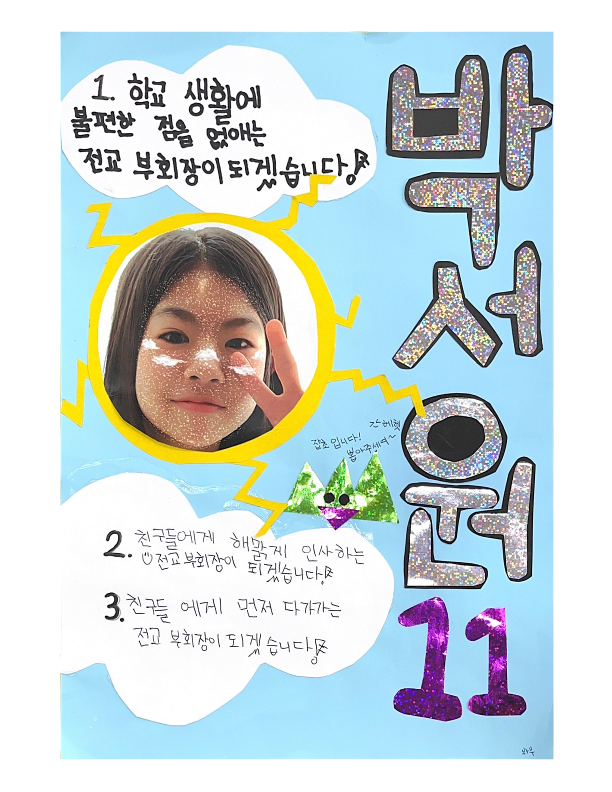 1. 학교 생활에
불편한 점을 없애는
전교 부회장이 되겠습니다!
박서원
11
잡초입니다!
뽑아주세여~
2. 친구들에게 해맑게 인사하는
전교 부회장이 되겠습니다!
3. 친구들 에게 먼저 다가가는
전교 부회장이 되겠습니다!